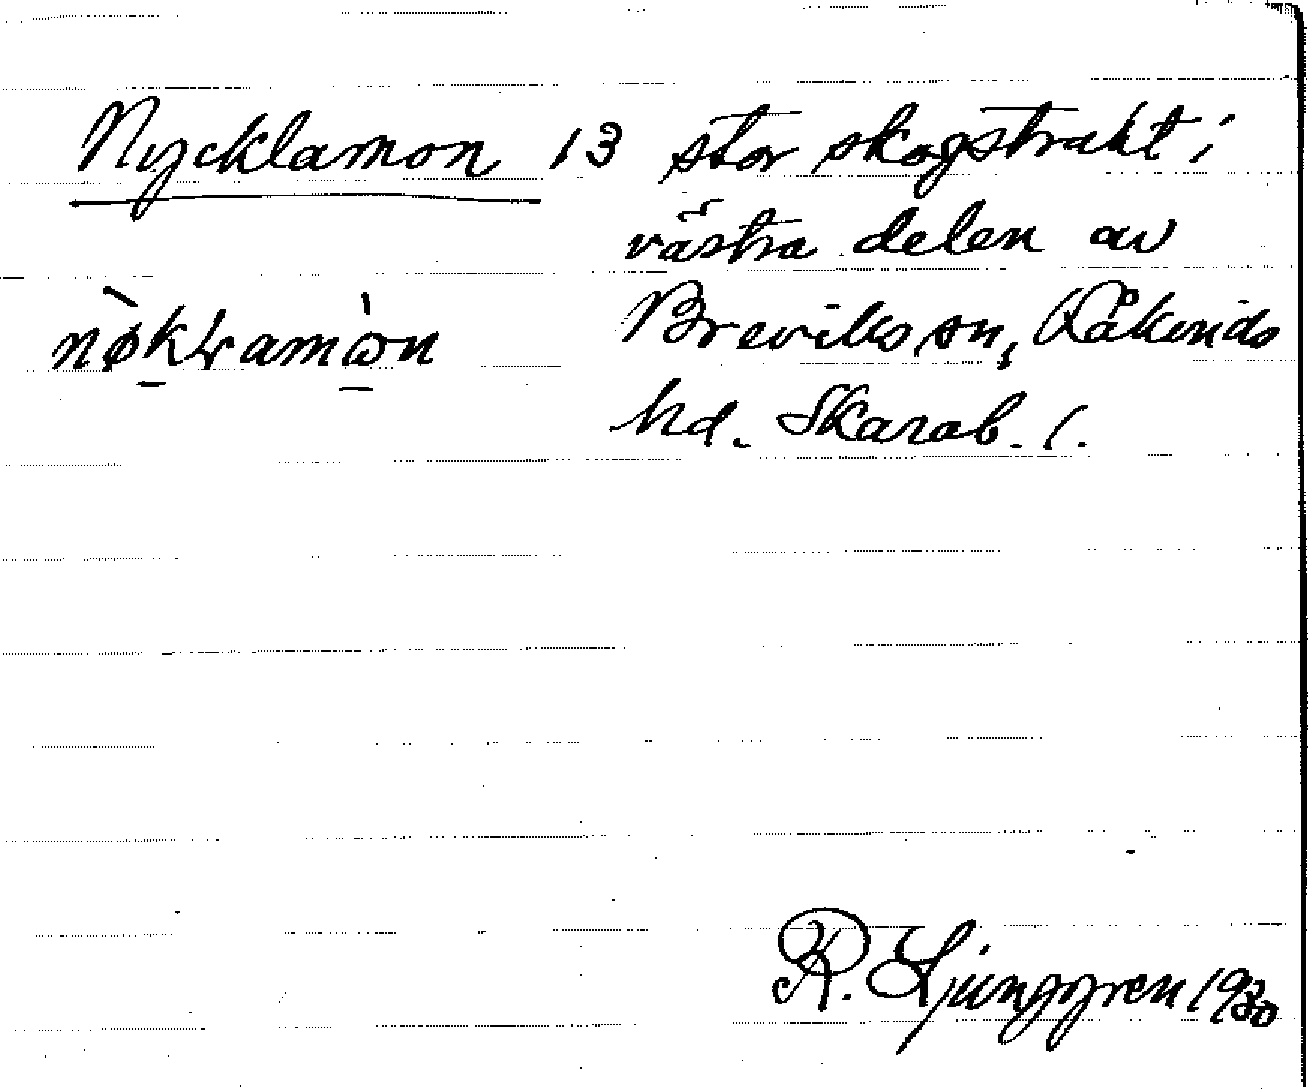 Nycklamon 13 stor skogstrakt i
västra delen av
Breviks sn, Kåkinds
hd. Skarab. l.
R. Ljunggren 1930